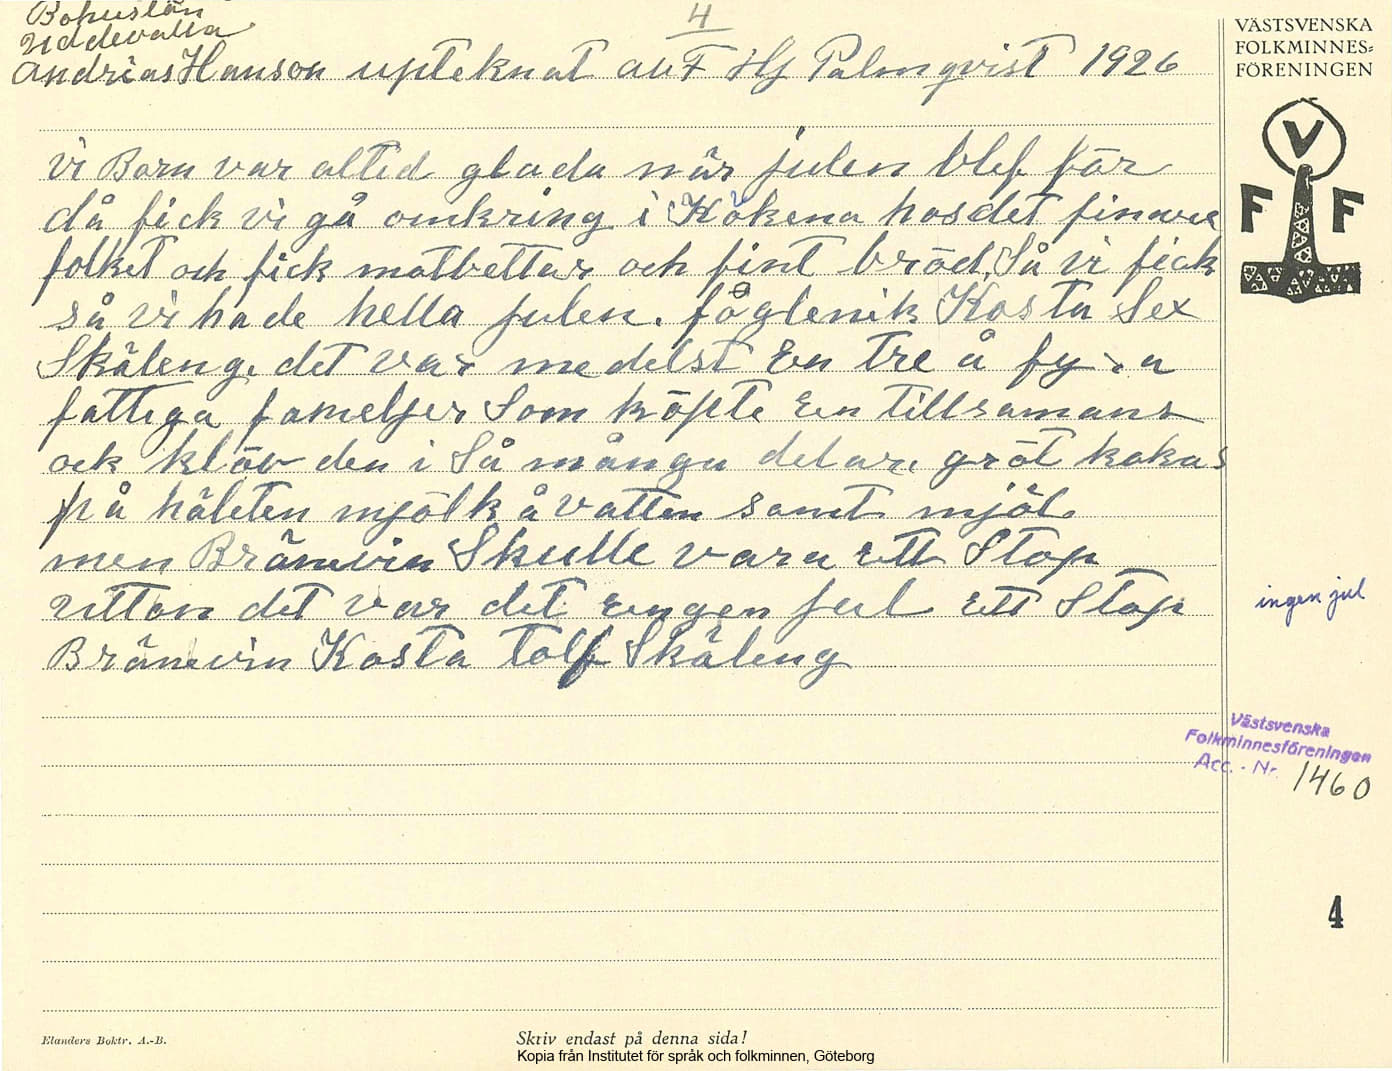 Bohuslän
Uddevalla
4
Andrias Hanson upteknat av F Hj Palmqvist 1926
VÄSTSVENSKA
FOLKMINNES-
FÖRENINGEN
V
F F
vi Barn var altid glada när julen blef för
då fick vi gå omkring i Kökena hos det finare
folket och fick matbettar och fint bröd, Så vi fick
så vi hade hella julen. föglenik Kosta Sex
Skäleng. det var medelst En tre å fyra
fattiga fameljer Som köpte En tillsamans
ock klöv den i Så många delar, gröt kokas
på hälften mjölk å vatten samt mjöl
men Bränevin Skulle vara Ett Stop
uttan det var det engen jul Ett Stop
Bränevin Kosta tolf Skäleng
ingen jul
Västsvenska
Folkminnesföreningen
Acc. - Nr. 1460
4
Elanders Boktr. A.-B.
Skriv endast på denna sida!
Kopia från Institutet för språk och folkminnen, Göteborg